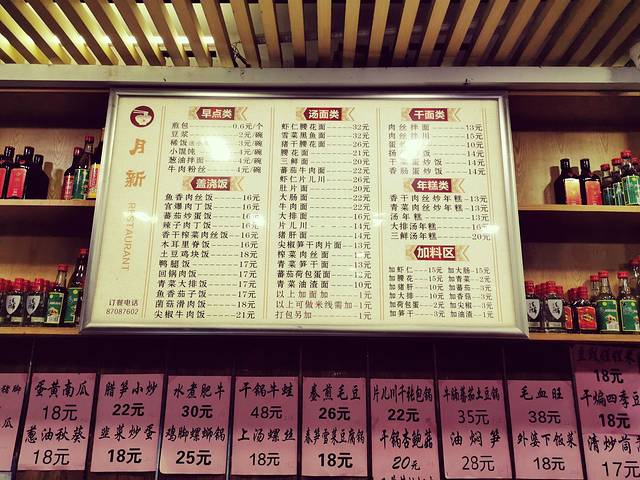 月新
RESTAURANT
订餐电话
87087602
早点类
煎包 0.6元/个
豆浆 2元/碗
稀饭 3元/碗
小馄饨 4元/碗
葱油拌面 4元/碗
牛肉粉丝 4元/碗
盖浇饭
鱼香肉丝饭 16元
宫爆肉丁饭 16元
蕃茄炒蛋饭 16元
辣子肉丁饭 16元
香干榨菜肉丝饭 16元
木耳里脊饭 16元
土豆鸡块饭 18元
鸭腿饭 17元
回锅肉饭 17元
青菜大排饭 17元
鱼香茄子饭 17元
菌菇滑肉饭 18元
尖椒牛肉饭 21元
汤面类
虾仁腰花面 32元
雪菜黑鱼面 32元
猪肝腰花面 26元
腰花面 21元
三鲜面 20元
蕃茄牛肉面 22元
虾仁片儿川 26元
肚片面 20元
大肠面 22元
牛肉面 22元
大排面 16元
片儿川 14元
猪肝面 15元
尖椒笋干肉片面 13元
榨菜肉丝面 13元
青菜笋干面 13元
蕃茄荷包蛋面 12元
青菜油渣面 10元
以上加面加 1元
以上可做米线需加 1元
打包另加 1元
干面类
肉丝拌面 13元
肉丝拌川 15元
年糕类
香干肉丝炒年糕 13元
青菜肉丝炒年糕 13元
汤年糕 13元
大排汤年糕 16元
三鲜汤年糕 20元
加料区
加虾仁 15元 加大肠 15元
加腰花 15元 加青菜 2元
加猪肝 10元 加蕃茄 3元
加大排 10元 加香菇 3元
加荷包蛋 2元 加尖椒 3元
加笋干 3元 加油渣 1元
蛋黄南瓜
18元
葱油秋葵
18元
腊笋小炒
22元
韭菜炒蛋
18元
水煮肥牛
30元
鸡脚螺蛳锅
25元
干锅牛蛙
48元
上汤螺丝
18元
26元
春笋雪菜豆腐锅
18元
片儿川千张包锅
22元
20元
牛腩蕃茄土豆锅
35元
油焖笋
28元
毛血旺
38元
外婆下饭菜
18元
18元
干煸四季豆
18元
清炒茼
17元